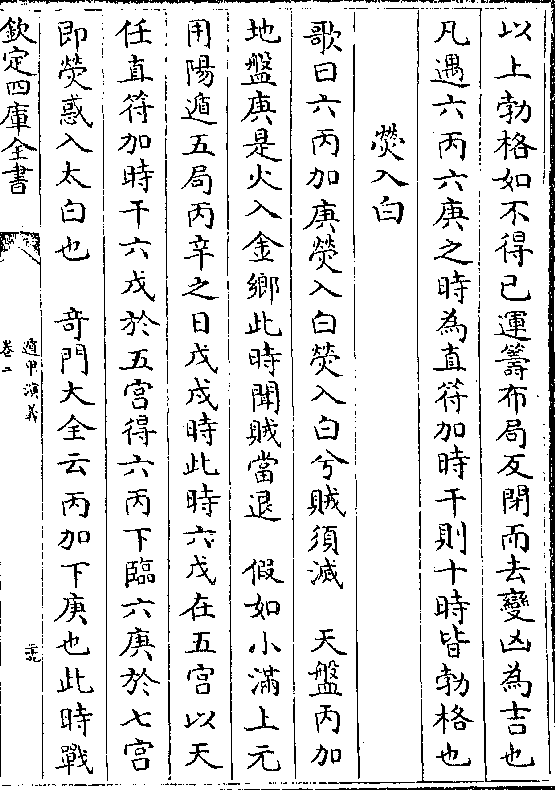 以上勃格如不得已運籌布局反閉而去變凶為吉也
凡遇六丙六庚之時為直符加時干則十時皆勃格也
熒入白
歌曰六丙加庚熒入白熒入白兮賊須滅　天盤丙加
地盤庚是火入金鄉此時聞賊當退　假如小滿上元
用陽遁五局丙辛之日戊戌時此時六戊在五宮以天
任直符加時干六戊於五宮得六丙下臨六庚於七宮
即熒惑入太白也　奇門大全云丙加下庚也此時戰
欽定四庫全書
遁甲演義
卷二